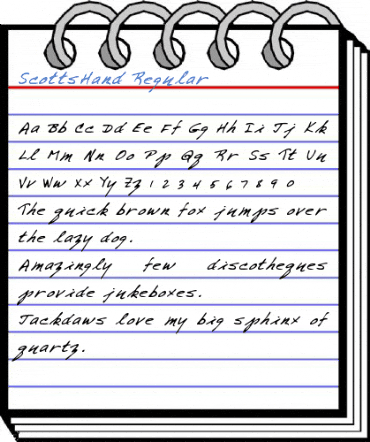 ScottsHand Regular
Aa Bb Cc Dd Ee Ff Gg Hh Ii Jj Kk
Ll Mm Nn Oo Pp Qq Rr Ss Tt Uu
Vv Ww Xx Yy Zz 1 2 3 4 5 6 7 8 9 0
The quick brown fox jumps over
the lazy dog.
Amazingly few discotheques
provide jukeboxes.
Jackdaws love my big sphinx of
quartz.